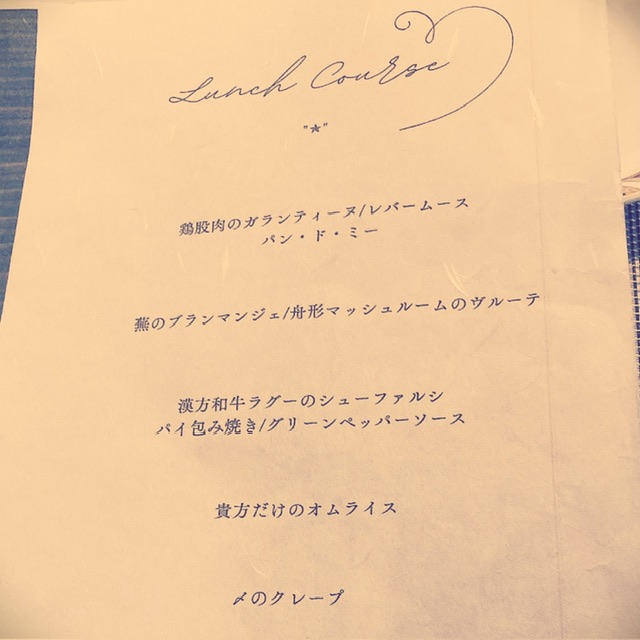 Lunch Course
"★"
鶏股肉のガランティーヌ/レバームース
パン・ド・ミー
蕪のブランマンジェ/舟形マッシュルームのヴルーテ
漢方和牛ラグーのシューファルシ
パイ包み焼き/グリーンペッパーソース
貴方だけのオムライス
〆のクレープ